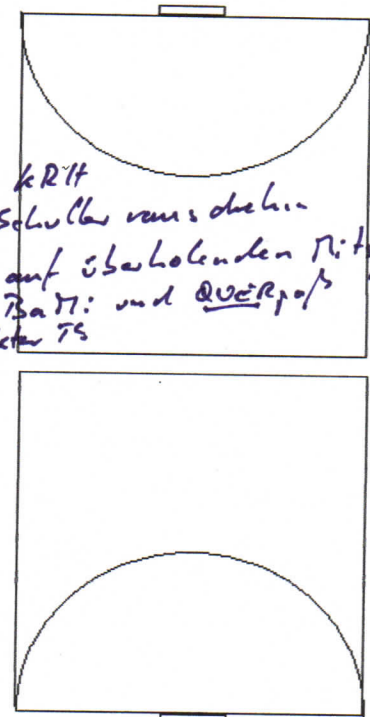 kRH
Schulter raus drehen
auf überholenden Mits
BaMi und QUERpaß
TS